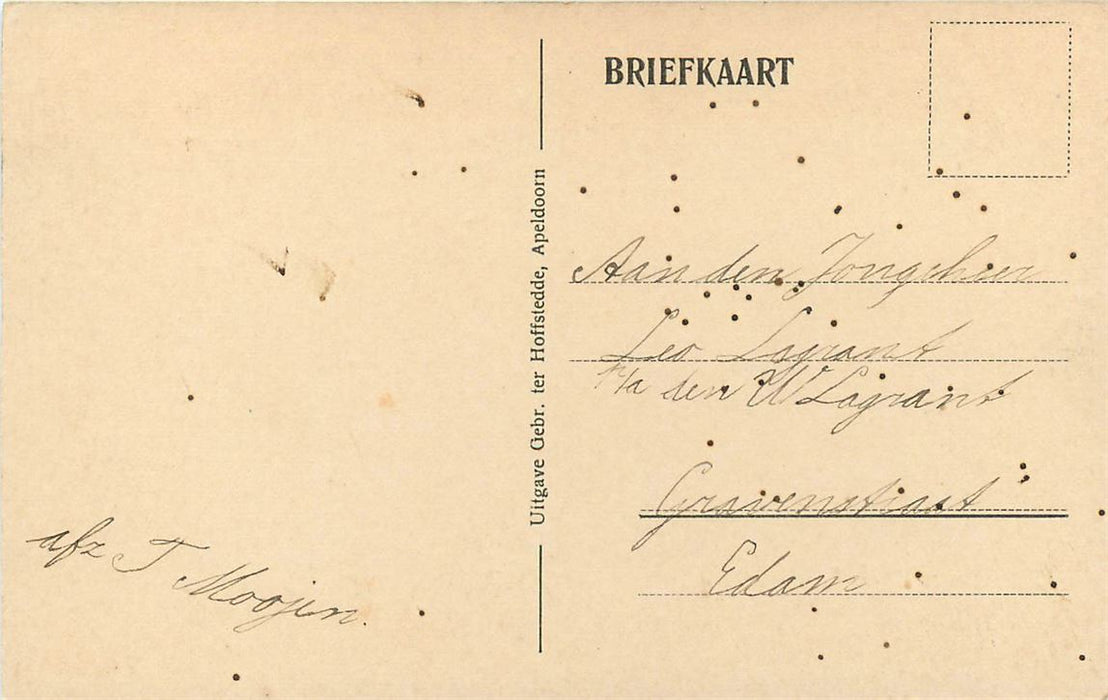 BRIEFKAART
Uitgave Gebr. ter Hoffstedde, Apeldoorn
Aan den Jongeheer
Leo Lagrant
p/a den W Lagrant
Gravenstraat
Edam
afz T Moojen.